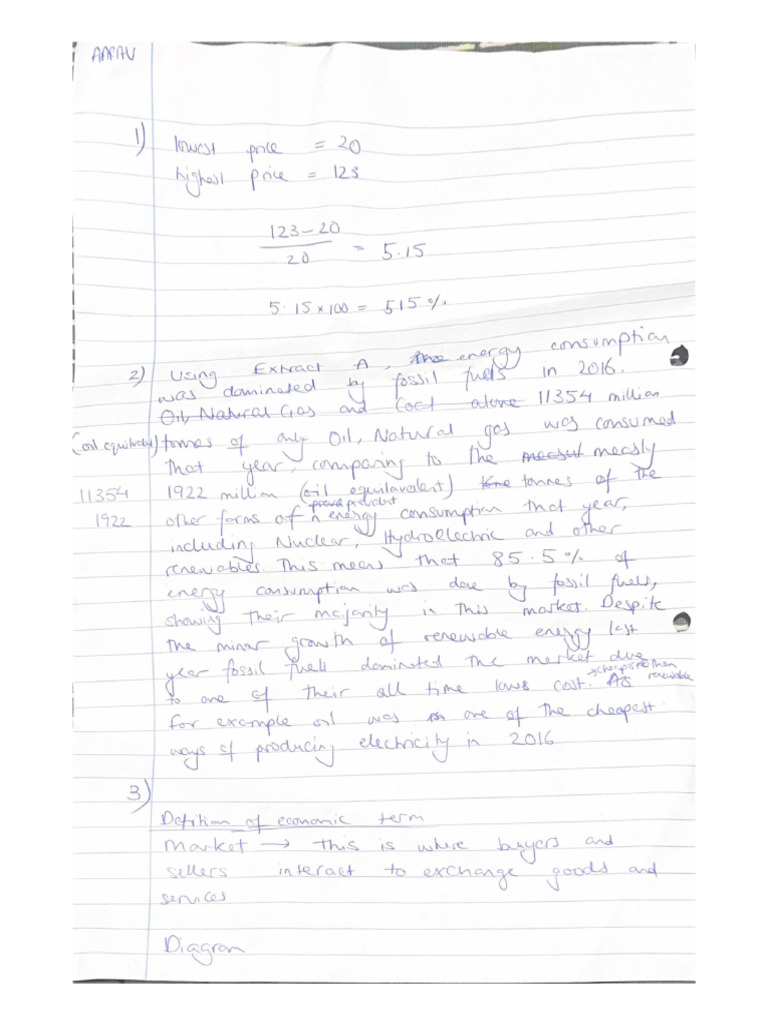 AARAV
1) lowest price = 20
highest price = 123
123 - 20
20
= 5.15
5.15 x 100 = 515%
2) Using Extract A, the energy consumption
was dominated by fossil fuels in 2016.
Oil, Natural Gas and Coal alone 11354 million
(oil equilavelty) tonnes of only Oil, Natural gas was consumed
that year, comparing to the measly
11354 1922 million (oil equilavelent) tonnes of the
1922 other forms of energy consumption that year,
including Nuclear, Hydroelectric and other
renewables. This means that 85.5% of
energy consumption was done by fossil fuels,
showing their majority in this market. Despite
the minor growth of renewable energy last
year fossil fuels dominated the market due
to one of their all time lows cost. As → cheaper than renewable
for example oil was one of the cheapest
ways of producing electricity in 2016
3)
Defition of economic term
Market → This is where buyers and
sellers interact to exchange goods and
services
Diagram